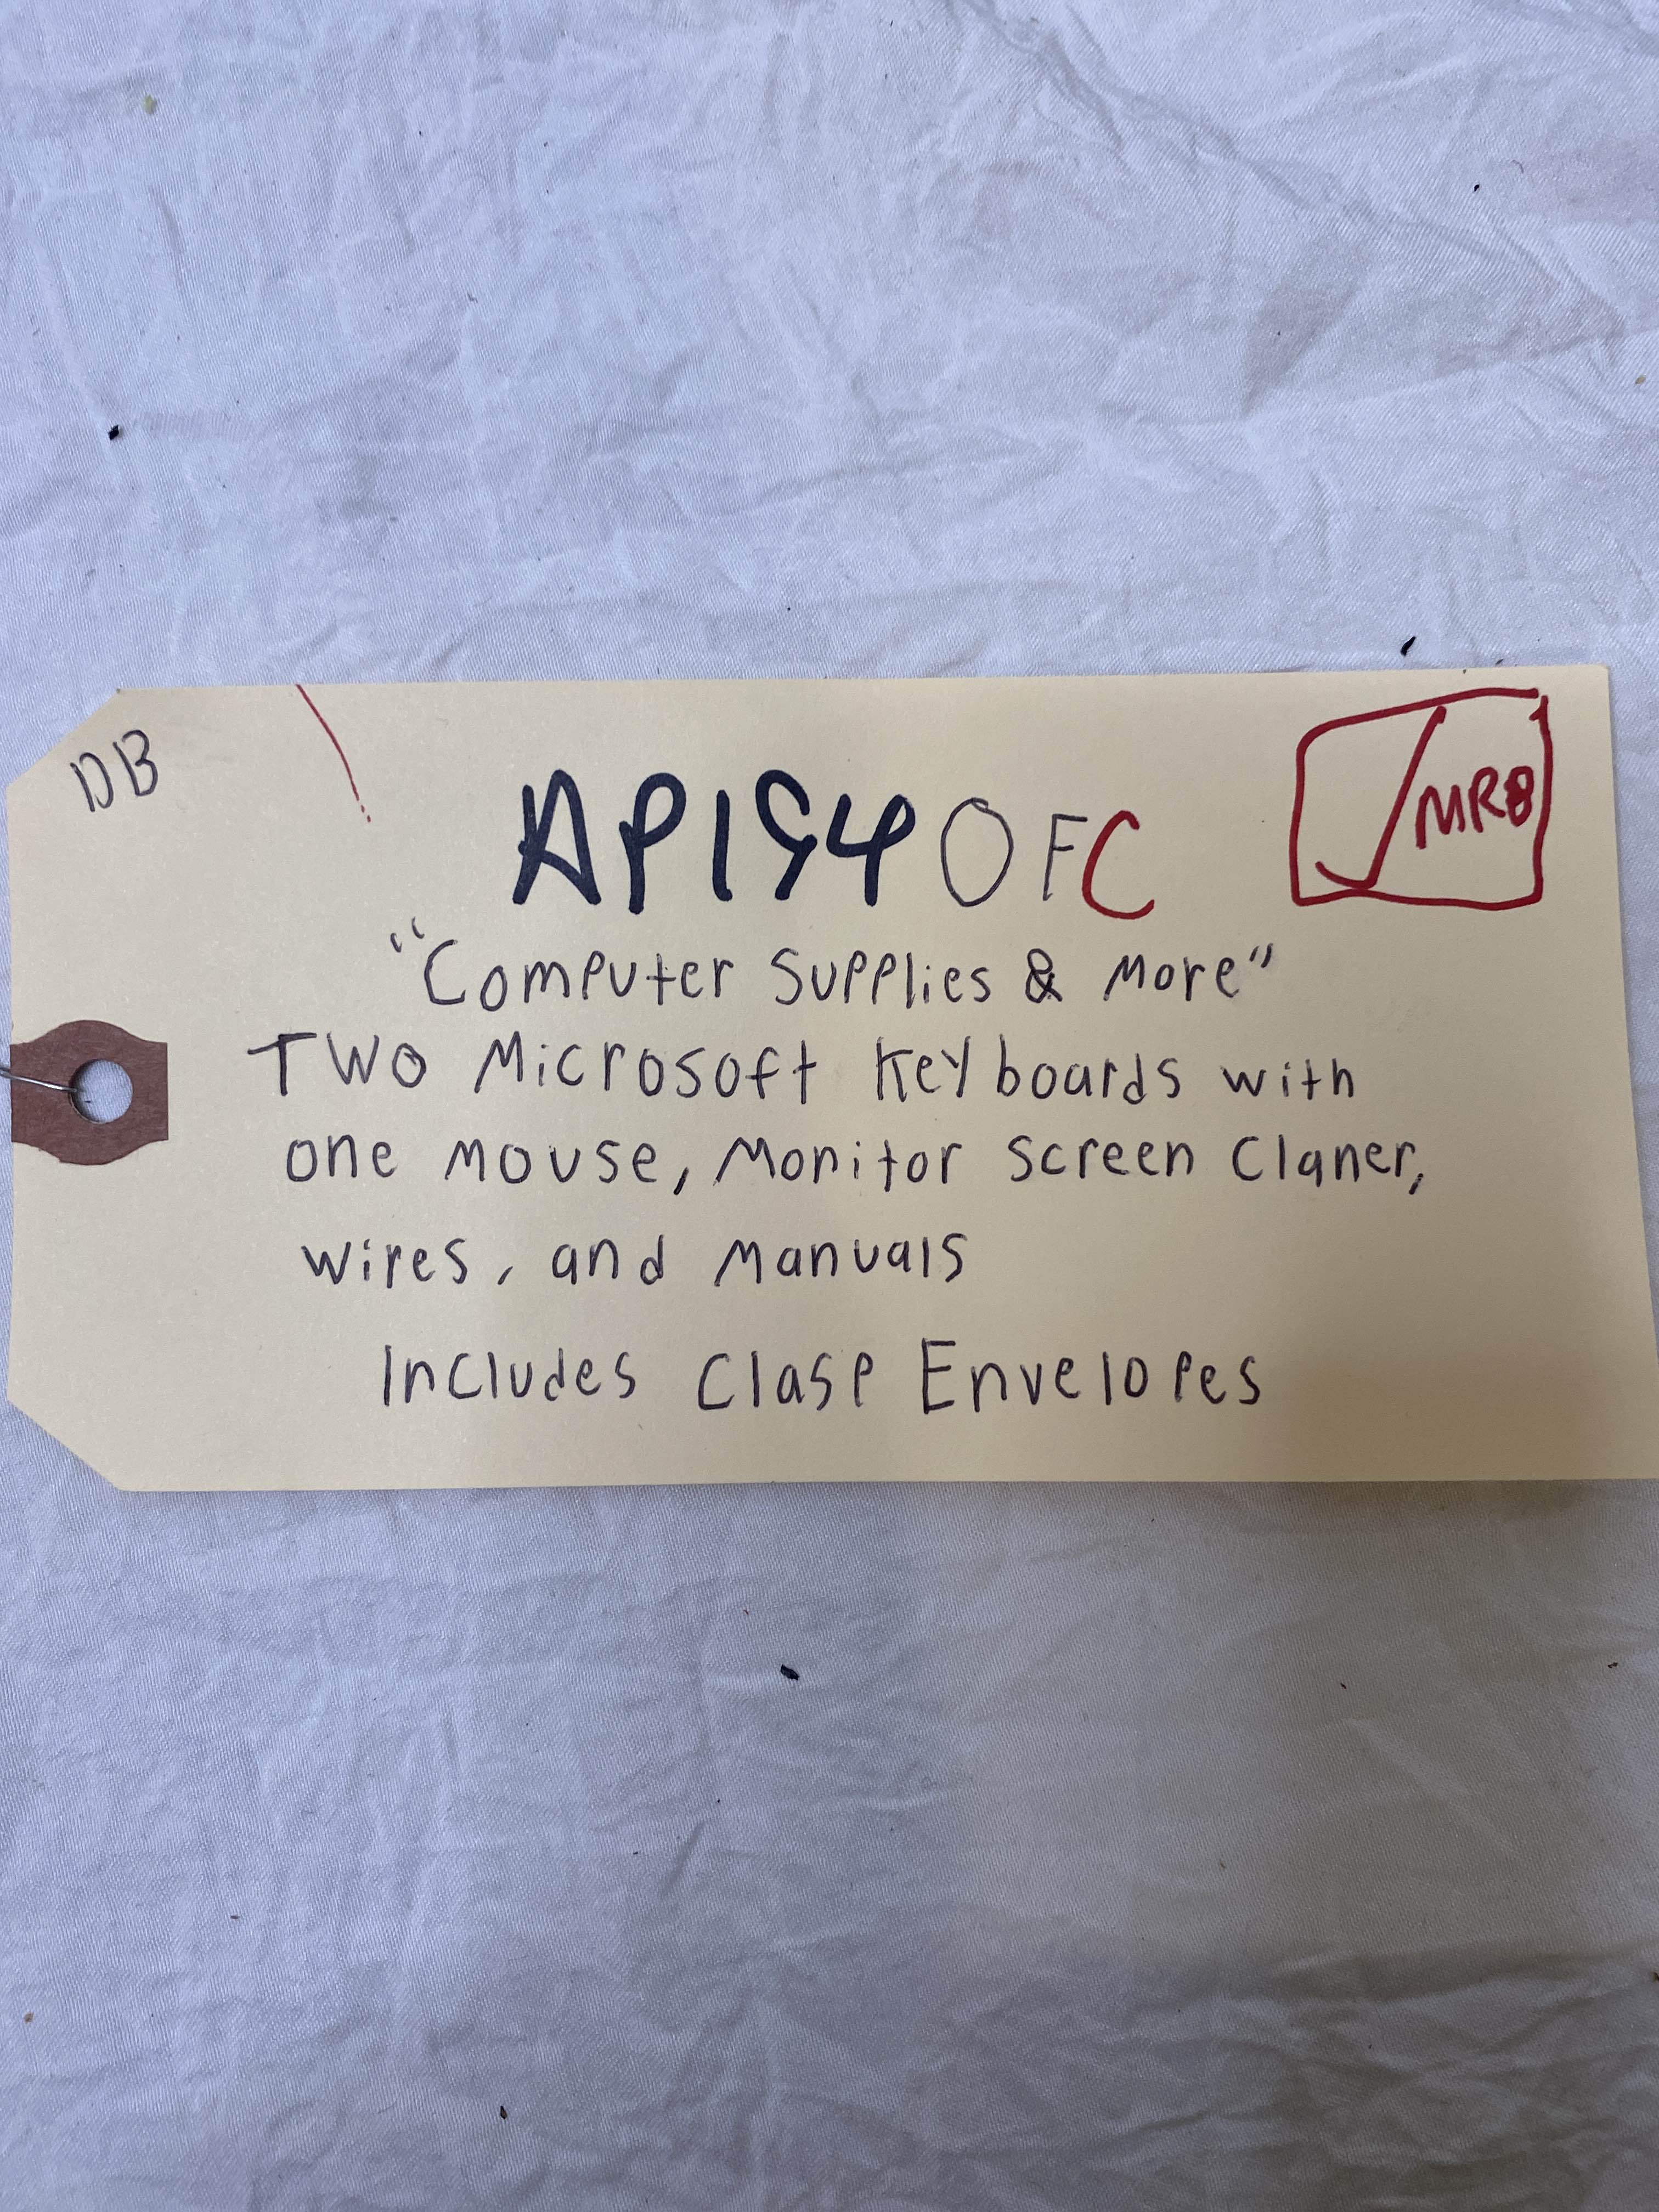 DB
AP154 OFC
✓MRB
"Computer Supplies & More"
Two Microsoft Keyboards with
one mouse, Monitor Screen Claner,
wires, and Manuals
Includes Clasp Envelopes